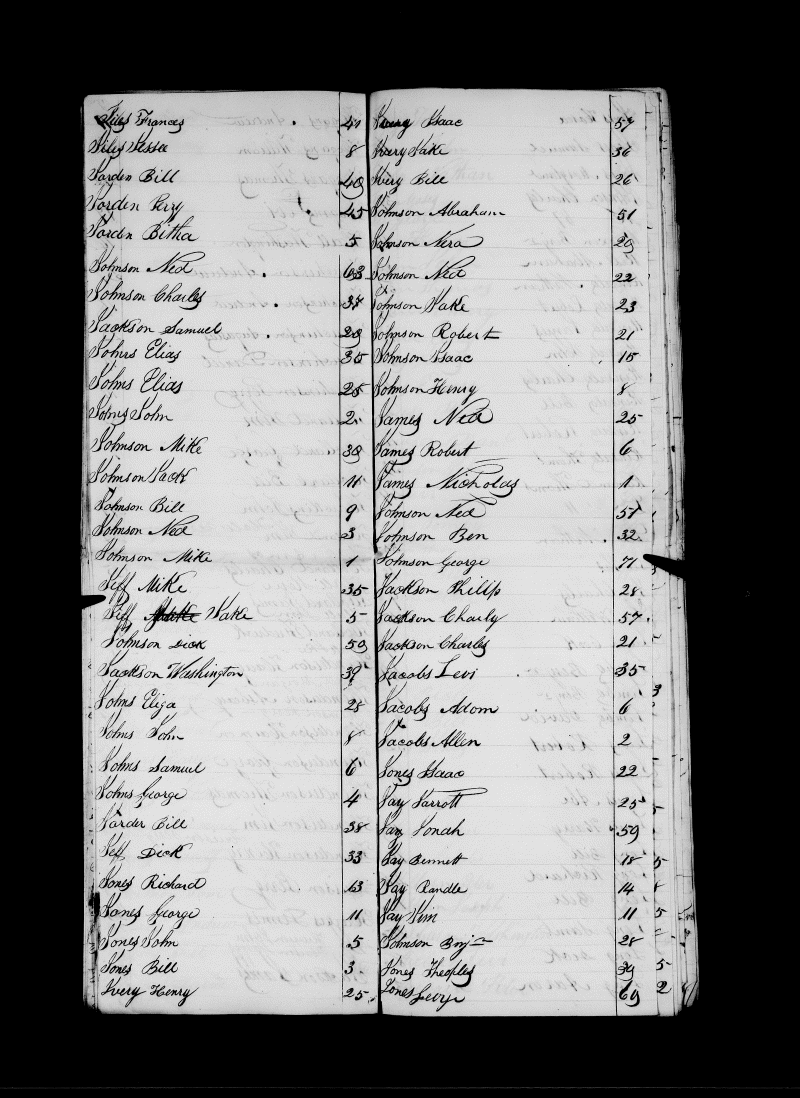 Iiles Frances 41
Iiles Jesse 8
Jorden Bill 48
Jorden Perry 45
Jorden Bitha 5
Johnson Ned 63
Johnson Charles 37
Jackson Samuel 28
Johns Elias 35
Johns Elias 25
Johns John 2
Johnson Mike 38
Johnson Jack 11
Johnson Bill 9
Johnson Ned 3
Johnson Mike 1
Jeff Mike 35
Jeff Jake 5
Johnson Dick 59
Jackson Washington 39
Johns Eliza 28
Johns John 8
Johns Samuel 6
Johns George 4
Jorder Bill 38
Jeff Dick 33
Jones Richard 13
Jones George 11
Jones John 5
Jones Bill 3
Ivery Henry 25
Ivery Isaac 57
Ivery Jake 36
Ivery Bill 26
Johnson Abraham 51
Johnson Nera 29
Johnson Ned 22
Johnson Jake 23
Johnson Robert 21
Johnson Isaac 15
Johnson Henry 8
James Ned 25
James Robert 6
James Nicholas 1
Johnson Ned 57
Johnson Ben 32
Johnson George 71
Jackson Philip 28
Jackson Charly 57
Jackson Charles 21
Jacobs Levi 35
Jacobs Adom 6
Jacobs Allen 2
Jones Isaac 22
Jay Jarrott 25
Jay Jonah 59
Jay Bennett 18
Jay Randle 14
Jay Jim 11
Johnson Benj 28
Jones Theoples 39
Jones 69